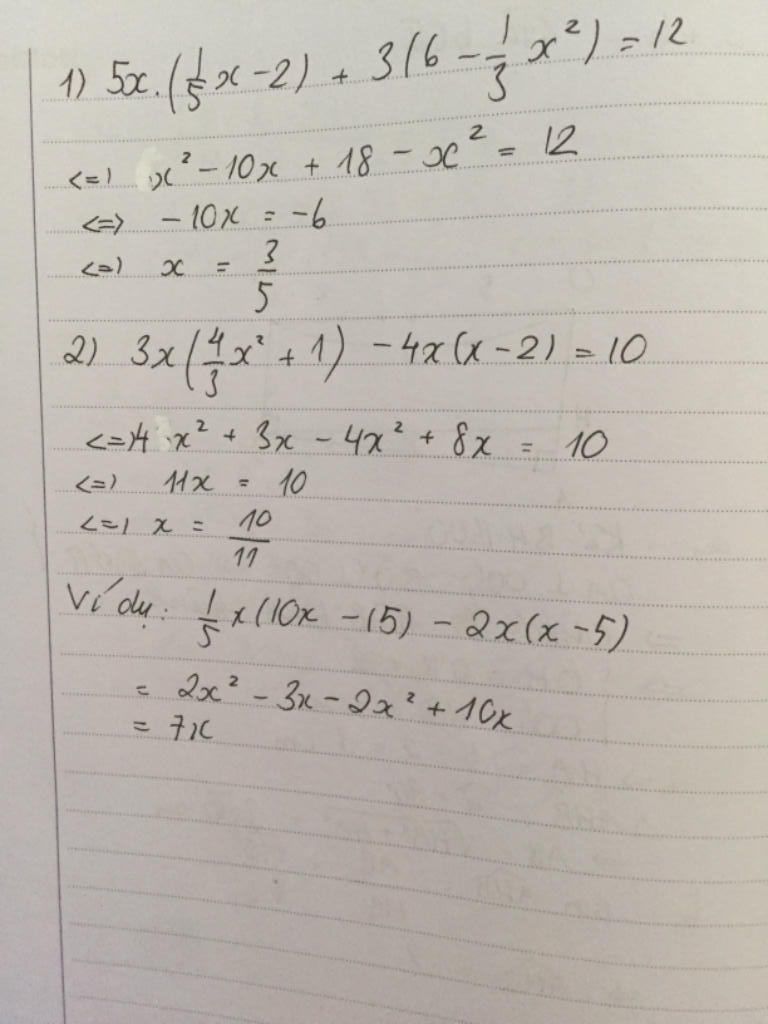 1) 5x.(1/5 x - 2) + 3(6 - 1/3 x²) = 12
<=> x² - 10x + 18 - x² = 12
<=> -10x = -6
<=> x = 3/5
2) 3x(4/3 x² + 1) - 4x(x - 2) = 10
<=> 4x² + 3x - 4x² + 8x = 10
<=> 11x = 10
<=> x = 10/11
Ví dụ: 1/5 x(10x - 15) - 2x(x - 5)
= 2x² - 3x - 2x² + 10x
= 7x